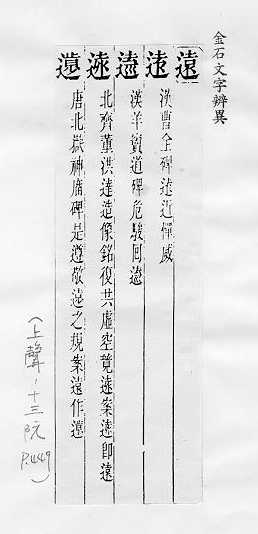 金石文字辨異
遠
逺 漢曹全碑逺近憚威
漢羊竇道碑危駿回
北齊董洪達造像銘復共虛空競逺案逺即遠
唐北嶽神廟碑是遵敬之規案遠作
(上聲、十三阮 P.449)